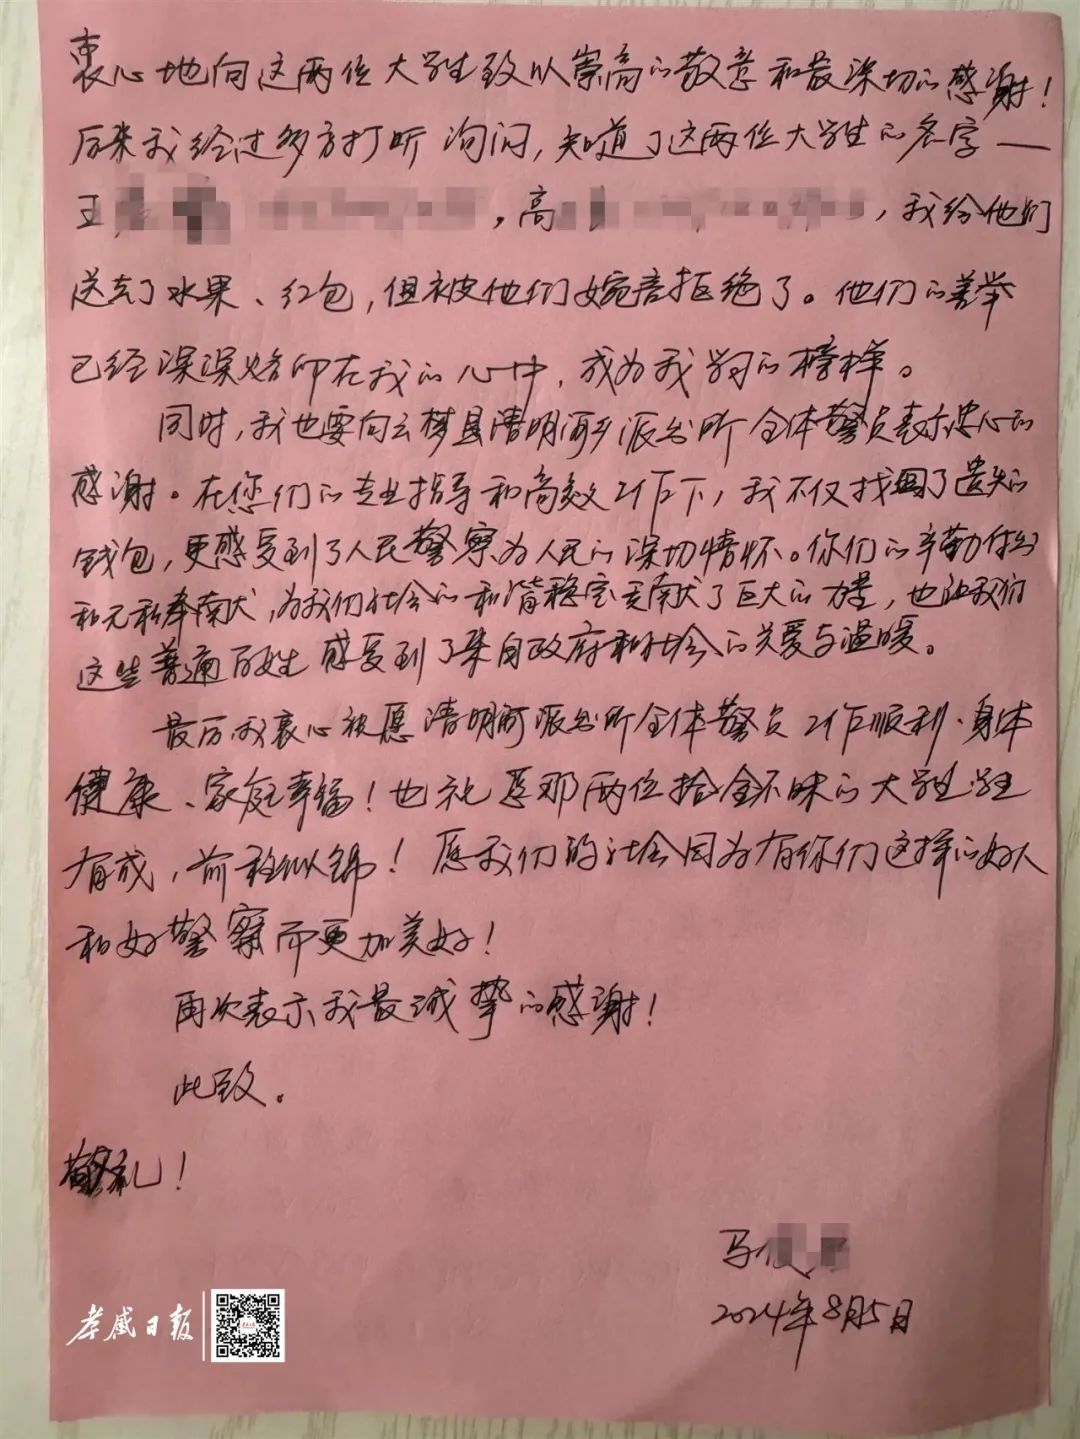 衷心地向这两位大学生致以崇高的敬意和最深切的感谢！
后来我经过多方打听询问，知道了这两位大学生的名字——
王，高，我给他们
送去了水果、红包，但被他们婉言拒绝了。他们的善举
已经深深烙印在我的心中，成为我学习的榜样。
同时，我也要向云梦县清明河乡派出所全体警员表示忠心的
感谢。在您们的专业指导和高效工作下，我不仅找回了遗失的
钱包，更感受到了人民警察为人民的深切情怀。你们的辛勤付出
和无私奉献，为我们社会的和谐稳定贡献了巨大的力量，也让我们
这些普通百姓感受到了来自政府和社会的关爱与温暖。
最后我衷心祝愿清明河派出所全体警员工作顺利、身体
健康、家庭幸福！也祝愿那两位拾金不昧的大学生学
有成，前程似锦！愿我们的社会因为有你们这样的好人
和好警察而更加美好！
再次表示我最诚挚的感谢！
此致。
敬礼！
马
2024年8月5日
孝感日报